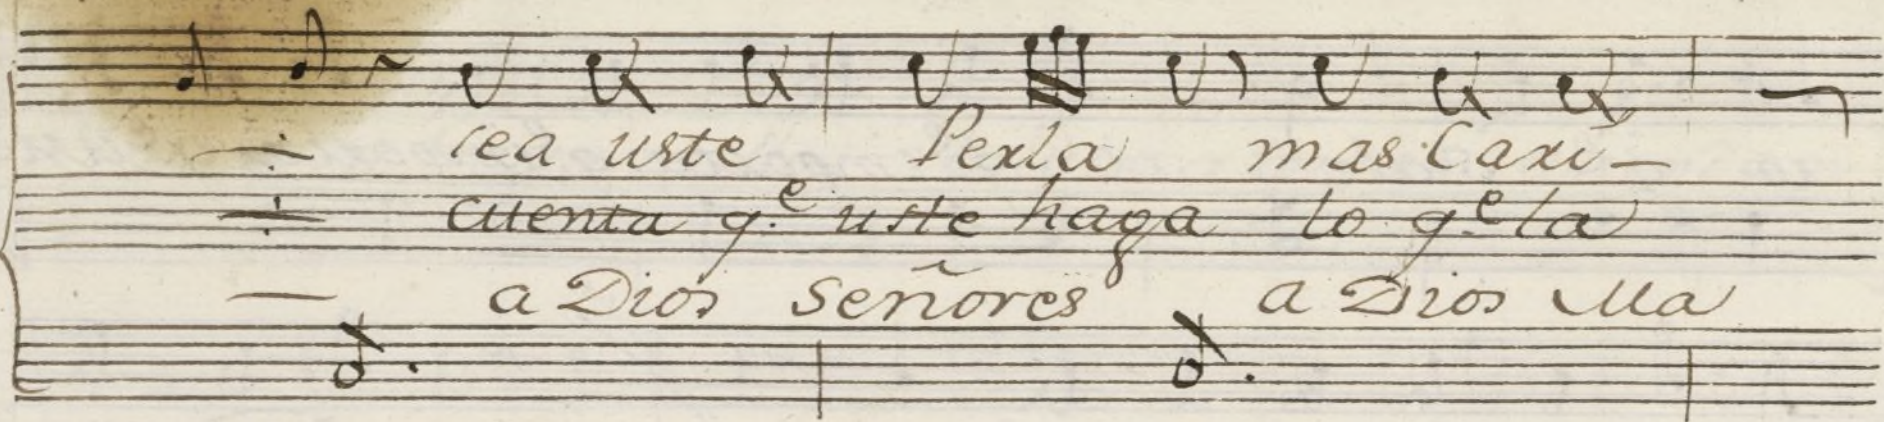 sea uste Perla mas Cari-
cuenta q.e uste haga lo q.e la
a Dios Señores a Dios Ma